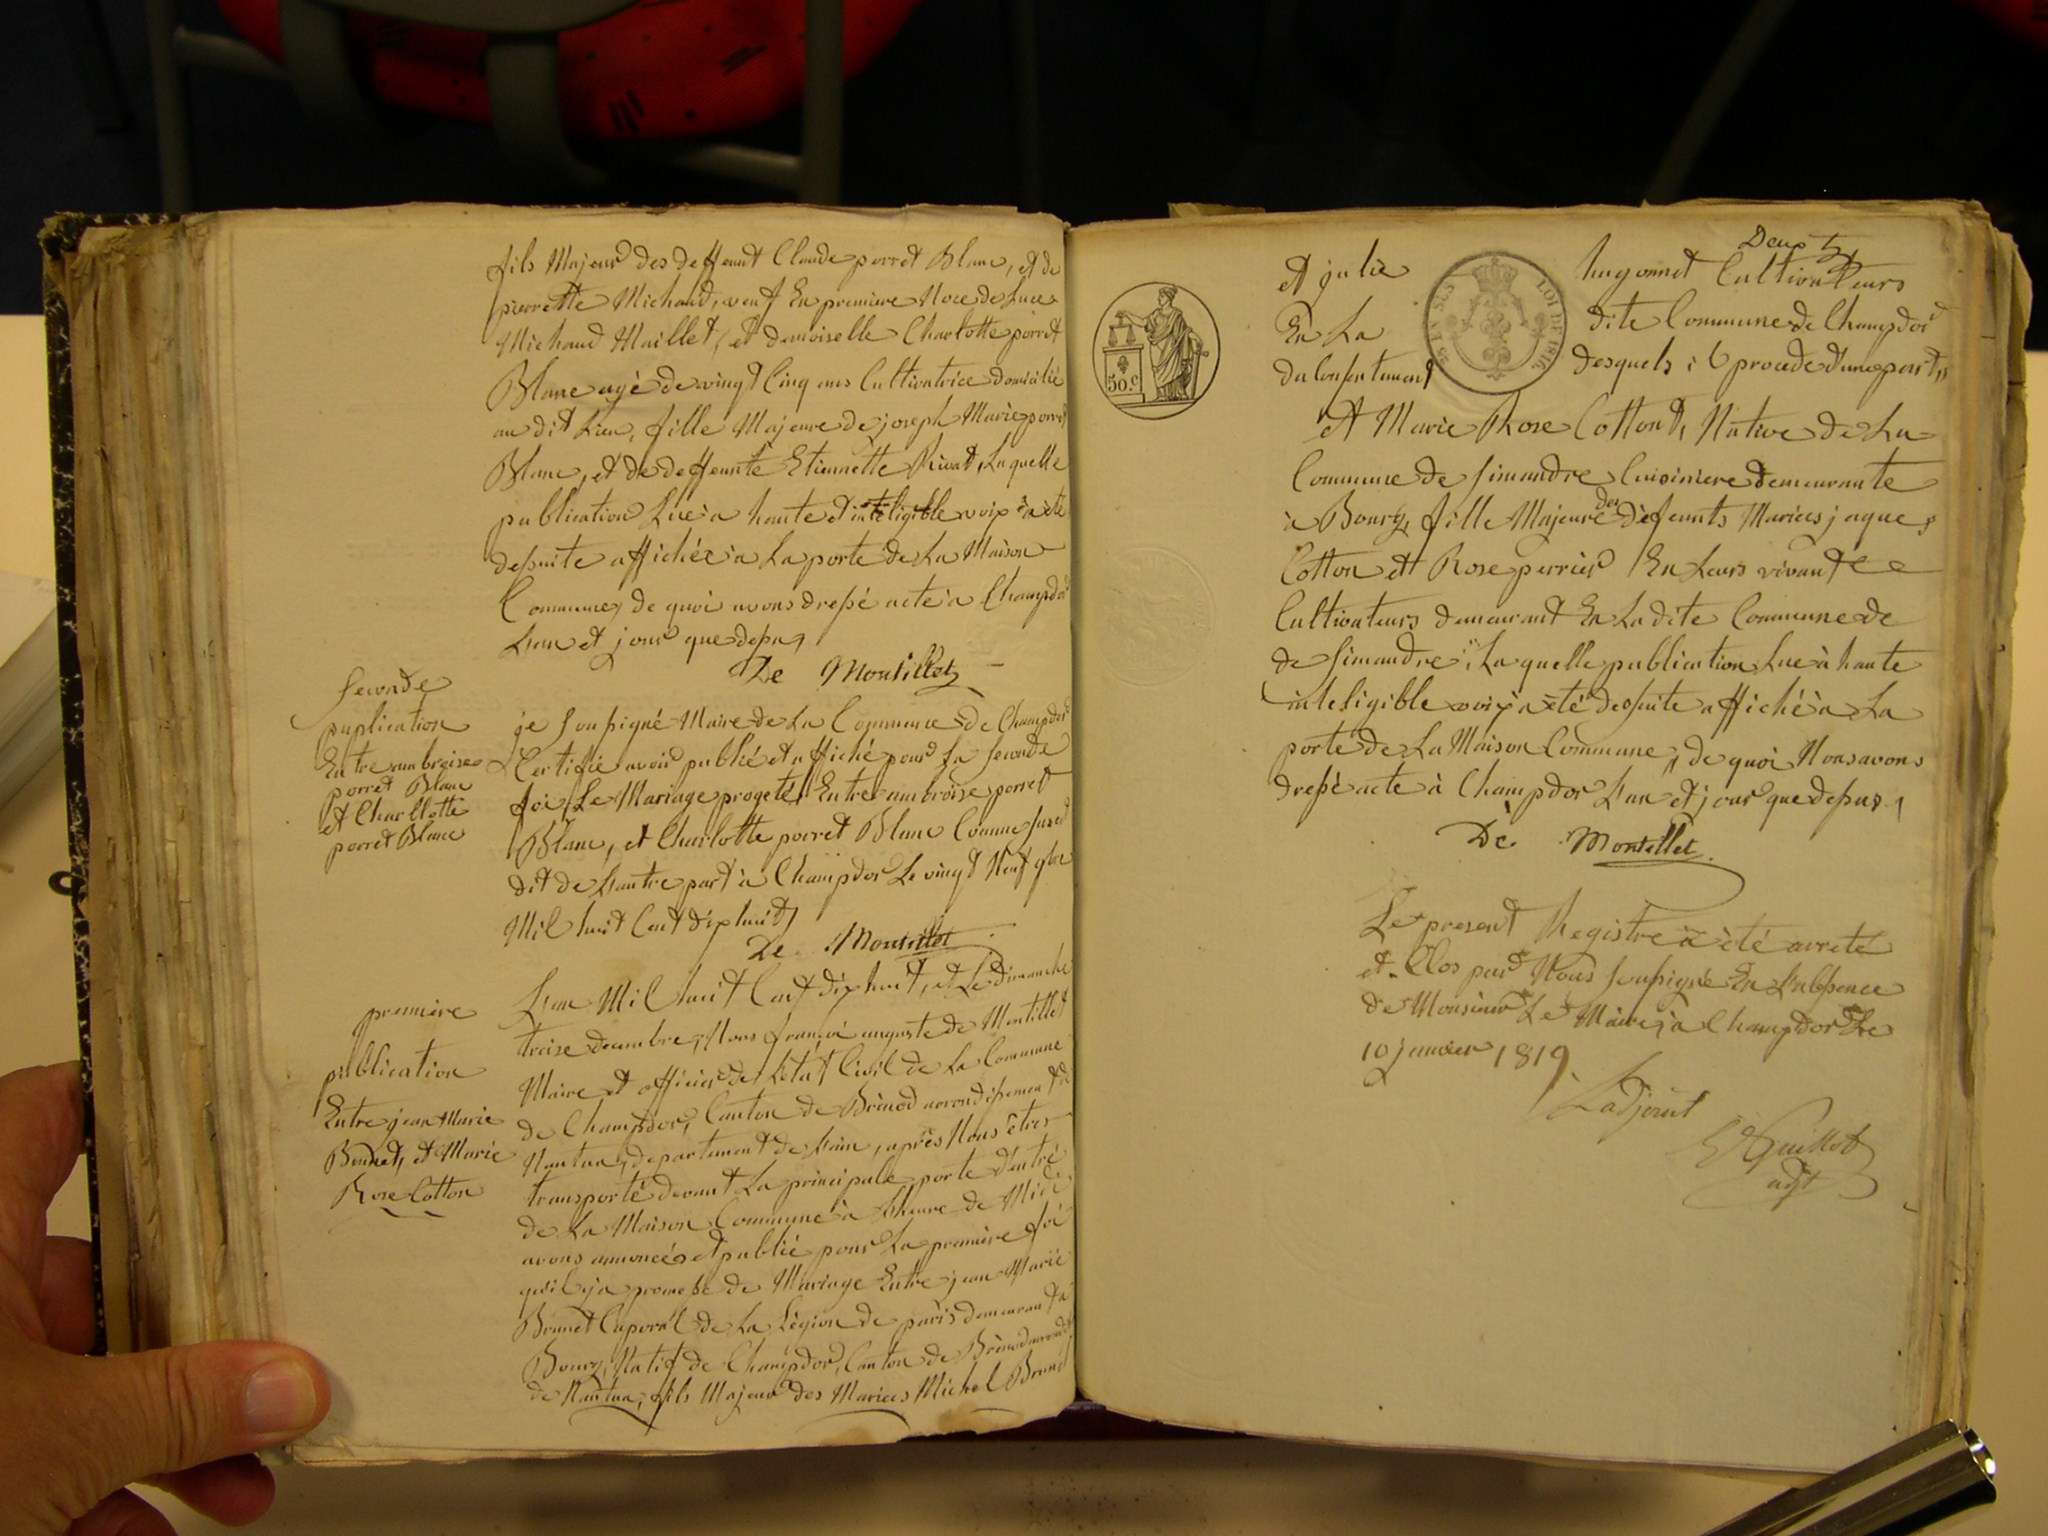 fils Majeur des deffeunt Claude porret Blanc, et de
pierrette Michaud, veuf En premiere Noce de Luce
Michaud Maillet, et demoiselle Charlotte porret
Blanc agé de vingt Cinq ans Cultivatrice domicilié
au dit Lieu, fille Majeure de joseph Marie porret
Blanc, et de deffeunte Etiennette Rivat, Laquelle
publication Lue a haute et inteligible voix a été
desuite affichée a La porte de La Maison
Commune, de quoi avons dressé acte a Champdor
L'an et jour que dessus,
De Montillet
seconde
puplication
Entre ambroise
porret Blanc
et Charllotte
porret Blanc
je soussigné Maire de La Commune de Champdor
Certifie avoir publié et affiché pour La seconde
foi Le Mariage progeté Entre ambroise porret
Blanc, et Charlotte porret Blanc Comme sused
dit de L'autre part à Champdor Le vingt Neuf 9bre
Mil huit Cent dixhuit,
De Montillet
premiere
publication
Entre jean Marie
Brunet, et Marie
Rose Cotton
L'an Mil huit Cent dixhuit, et Le dimanche
treize decembre, Nous françoi auguste de Montillet
Maire et officier de L'état Civil de La Commune
de Champdor, Canton de Brénod arrondissement de
Nantua, departement de L'ain, après Nous êtres
transporté devant La principale porte d'entré
de La Maison Commune à L'heure de Midi,
avons annoncée et publié pour La premiere foi
qu'il y a promesse de Mariage Entre jean Marie
Brunet Caporal de La Légion de paris demeurant à
Bourg, Natif de Champdor, Canton de Brénod arrondt
de Nantua, fils Majeur des Mariees Michel Brunet
Deux
50.c
LOI DE 1816
et julie hugonnet Cultivateurs
En La dite Commune de Champdor
du Consentement desquels il procede d'une part,,
et Marie Rose Cottont, Native de La
Commune de simandre Cuisiniere demeurante
à Bourg, fille Majeure des défeunts Mariees jaques
Cotton et Rose perrier En Leurs vivant
Cultivateurs demeurant En La dite Commune de
de simandre, Laquelle publication Lue à haute
inteligible voix a été desuite affiché à La
porte de La Maison Commune, de quoi Nous avons
dressé acte à Champdor L'an et jour que dessus,
De Montillet
Le present Registre a été arreté
et Clos par Nous soussigné En L'absence
de Monsieur Le Maire, a Champdor Le
10 janvier 1819
L'adjoint
Guillot
adjt